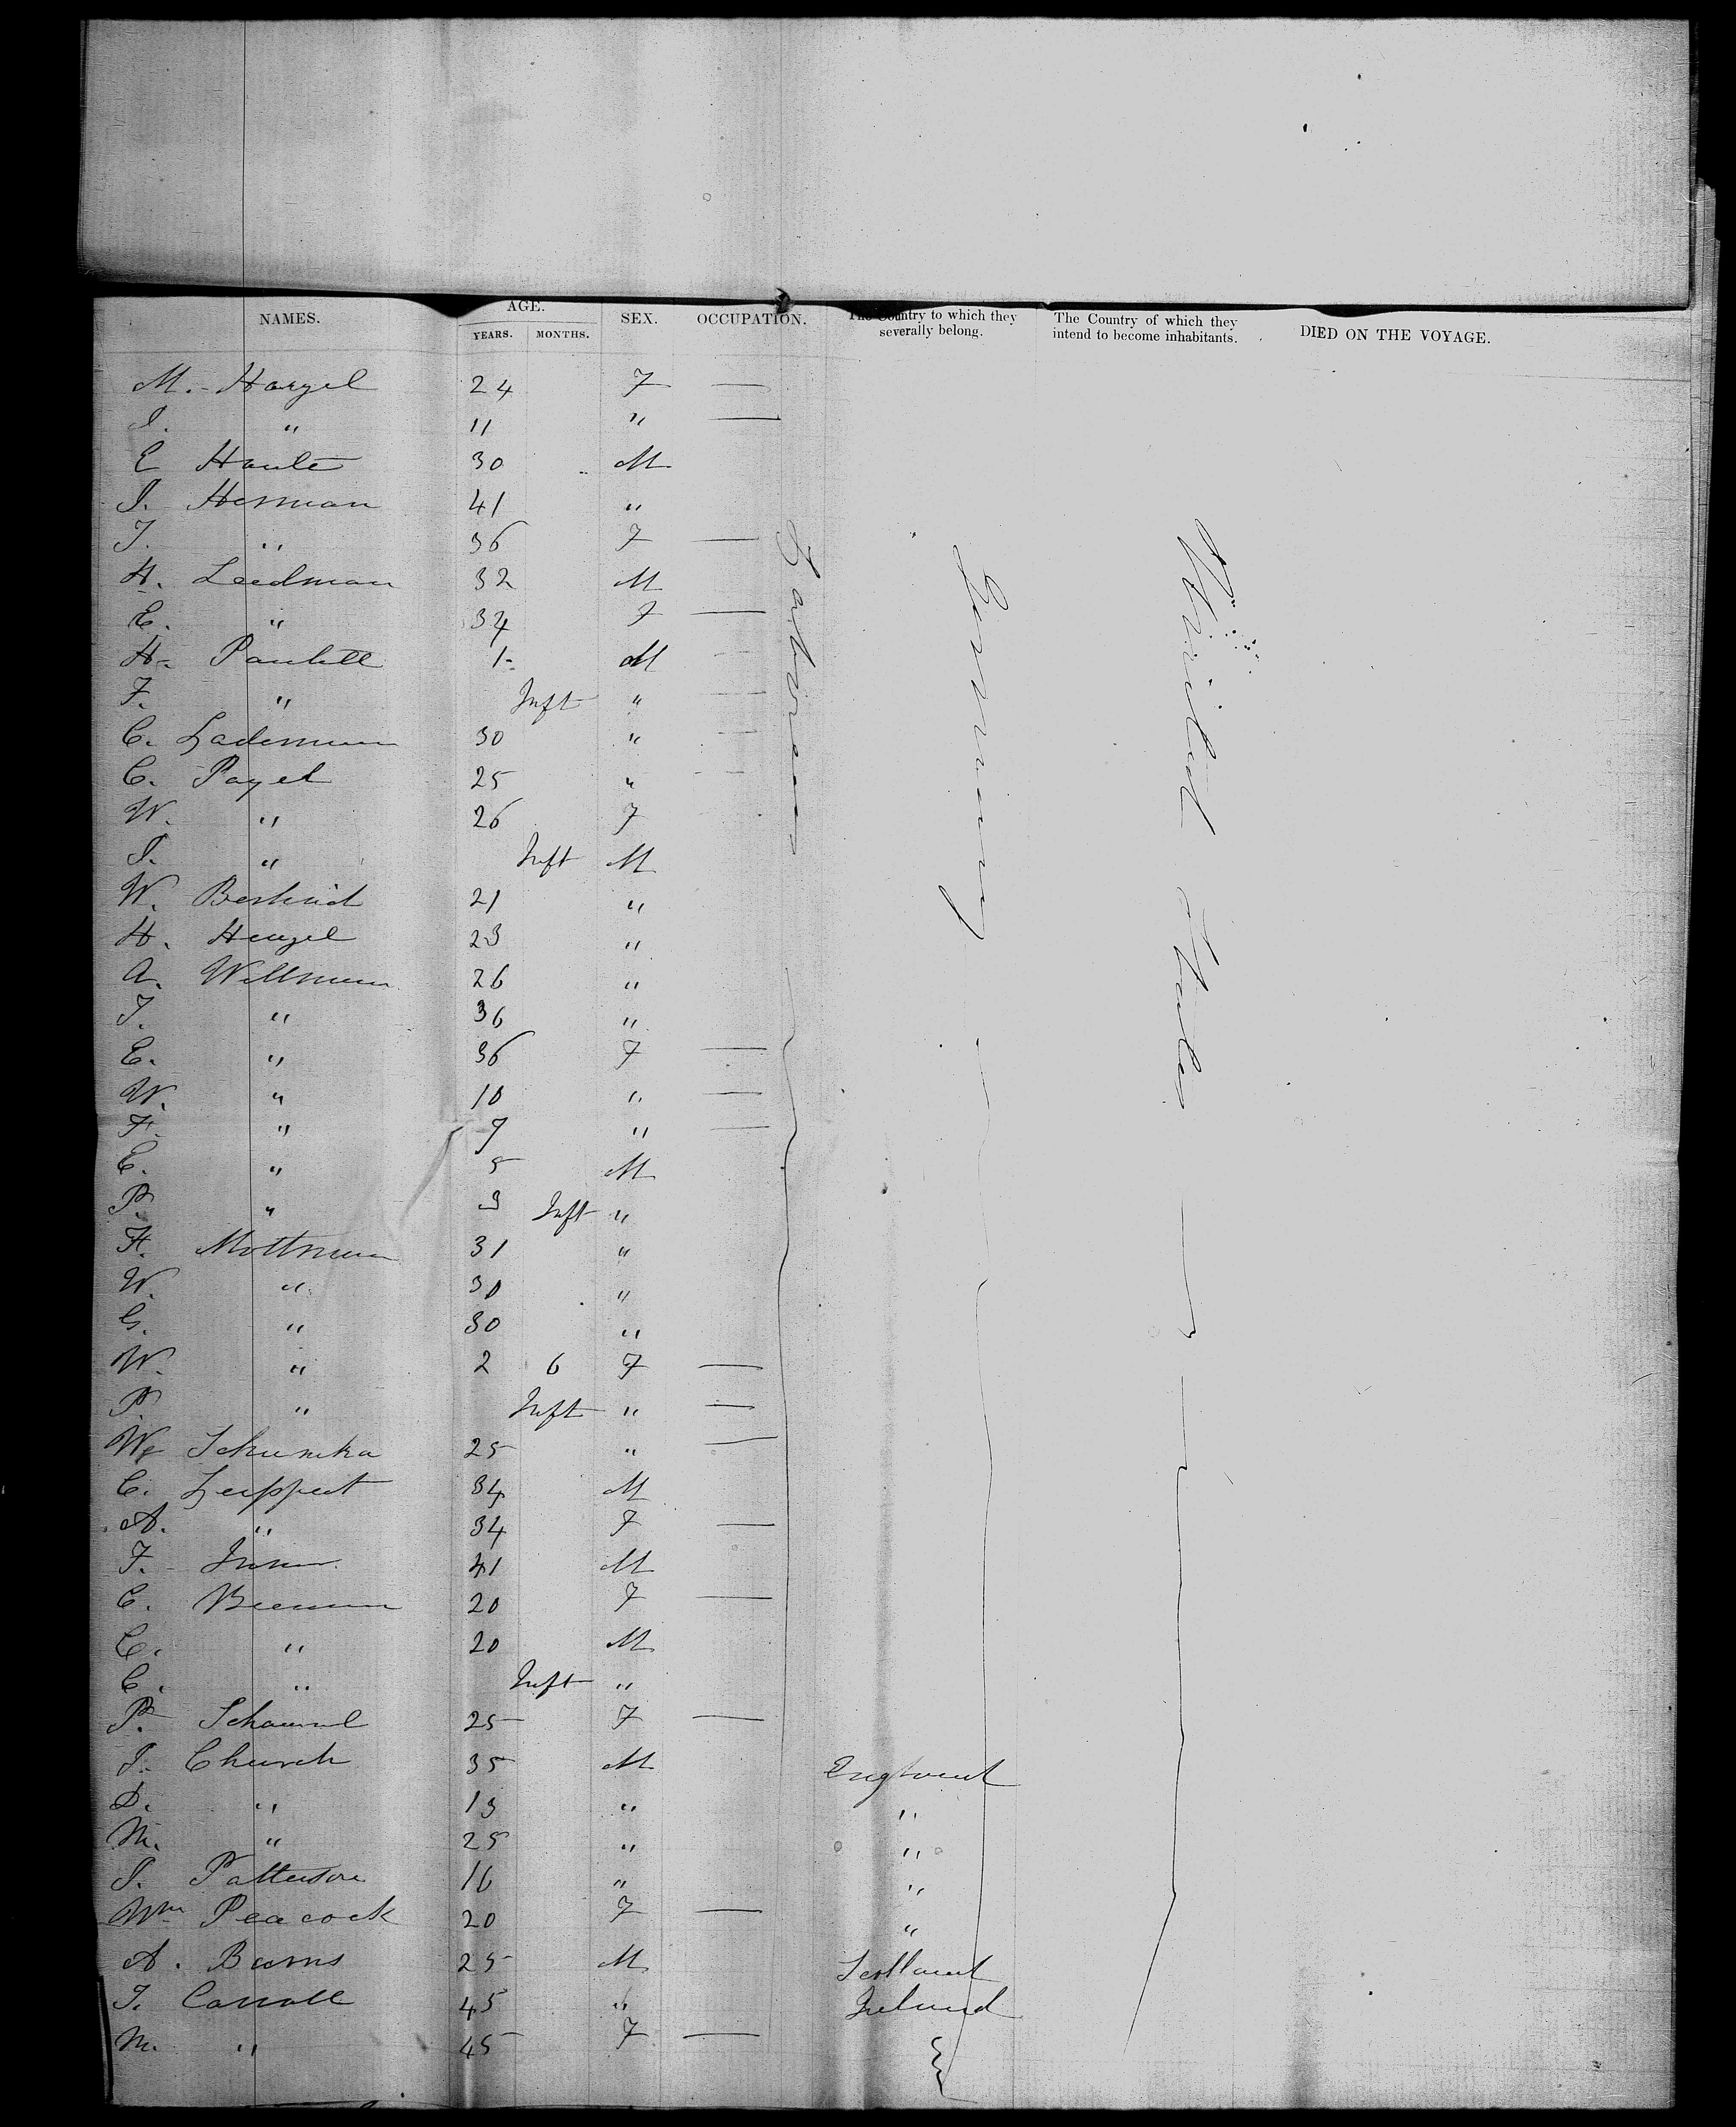 NAMES. AGE. YEARS. MONTHS. SEX. OCCUPATION. The Country to which they severally belong. The Country of which they intend to become inhabitants. DIED ON THE VOYAGE.
M. Hazel 24 F —
J. " 11 " —
E Haute 30 M
J. Herman 41 "
J. " 36 F —
H. Leedman 32 M
E. " 34 F —
H. 1 M
F. " Inft "
C. Lademan 30 "
C. Pagel 25 "
W. " 26 F
J. " Inft M
W. 21 "
H. Henzel 23 "
A. Wellman 26 "
J. " 36 "
E. " 36 F —
W. " 10 " —
F. " 7 " —
C. " 5 M
P. " 3 Inft "
H. Mottman 31 "
W. " 30 "
G. " 30 "
W. " 2 6 F —
P. " Inft " —
W. Schumka 25 " —
C. Leippert 34 M
A. " 34 F —
F. 41 M
C. 20 F —
C. " 20 M
C. " Inft "
P. 25 F —
J. Church 35 M England
D. " 13 " "
M. " 25 " "
J. Patterson 16 " "
Wm Peacock 20 F — "
A. Burns 25 M Scotland
T. Carroll 45 " Ireland
M. " 45 F —
Laborers
Germany
United States